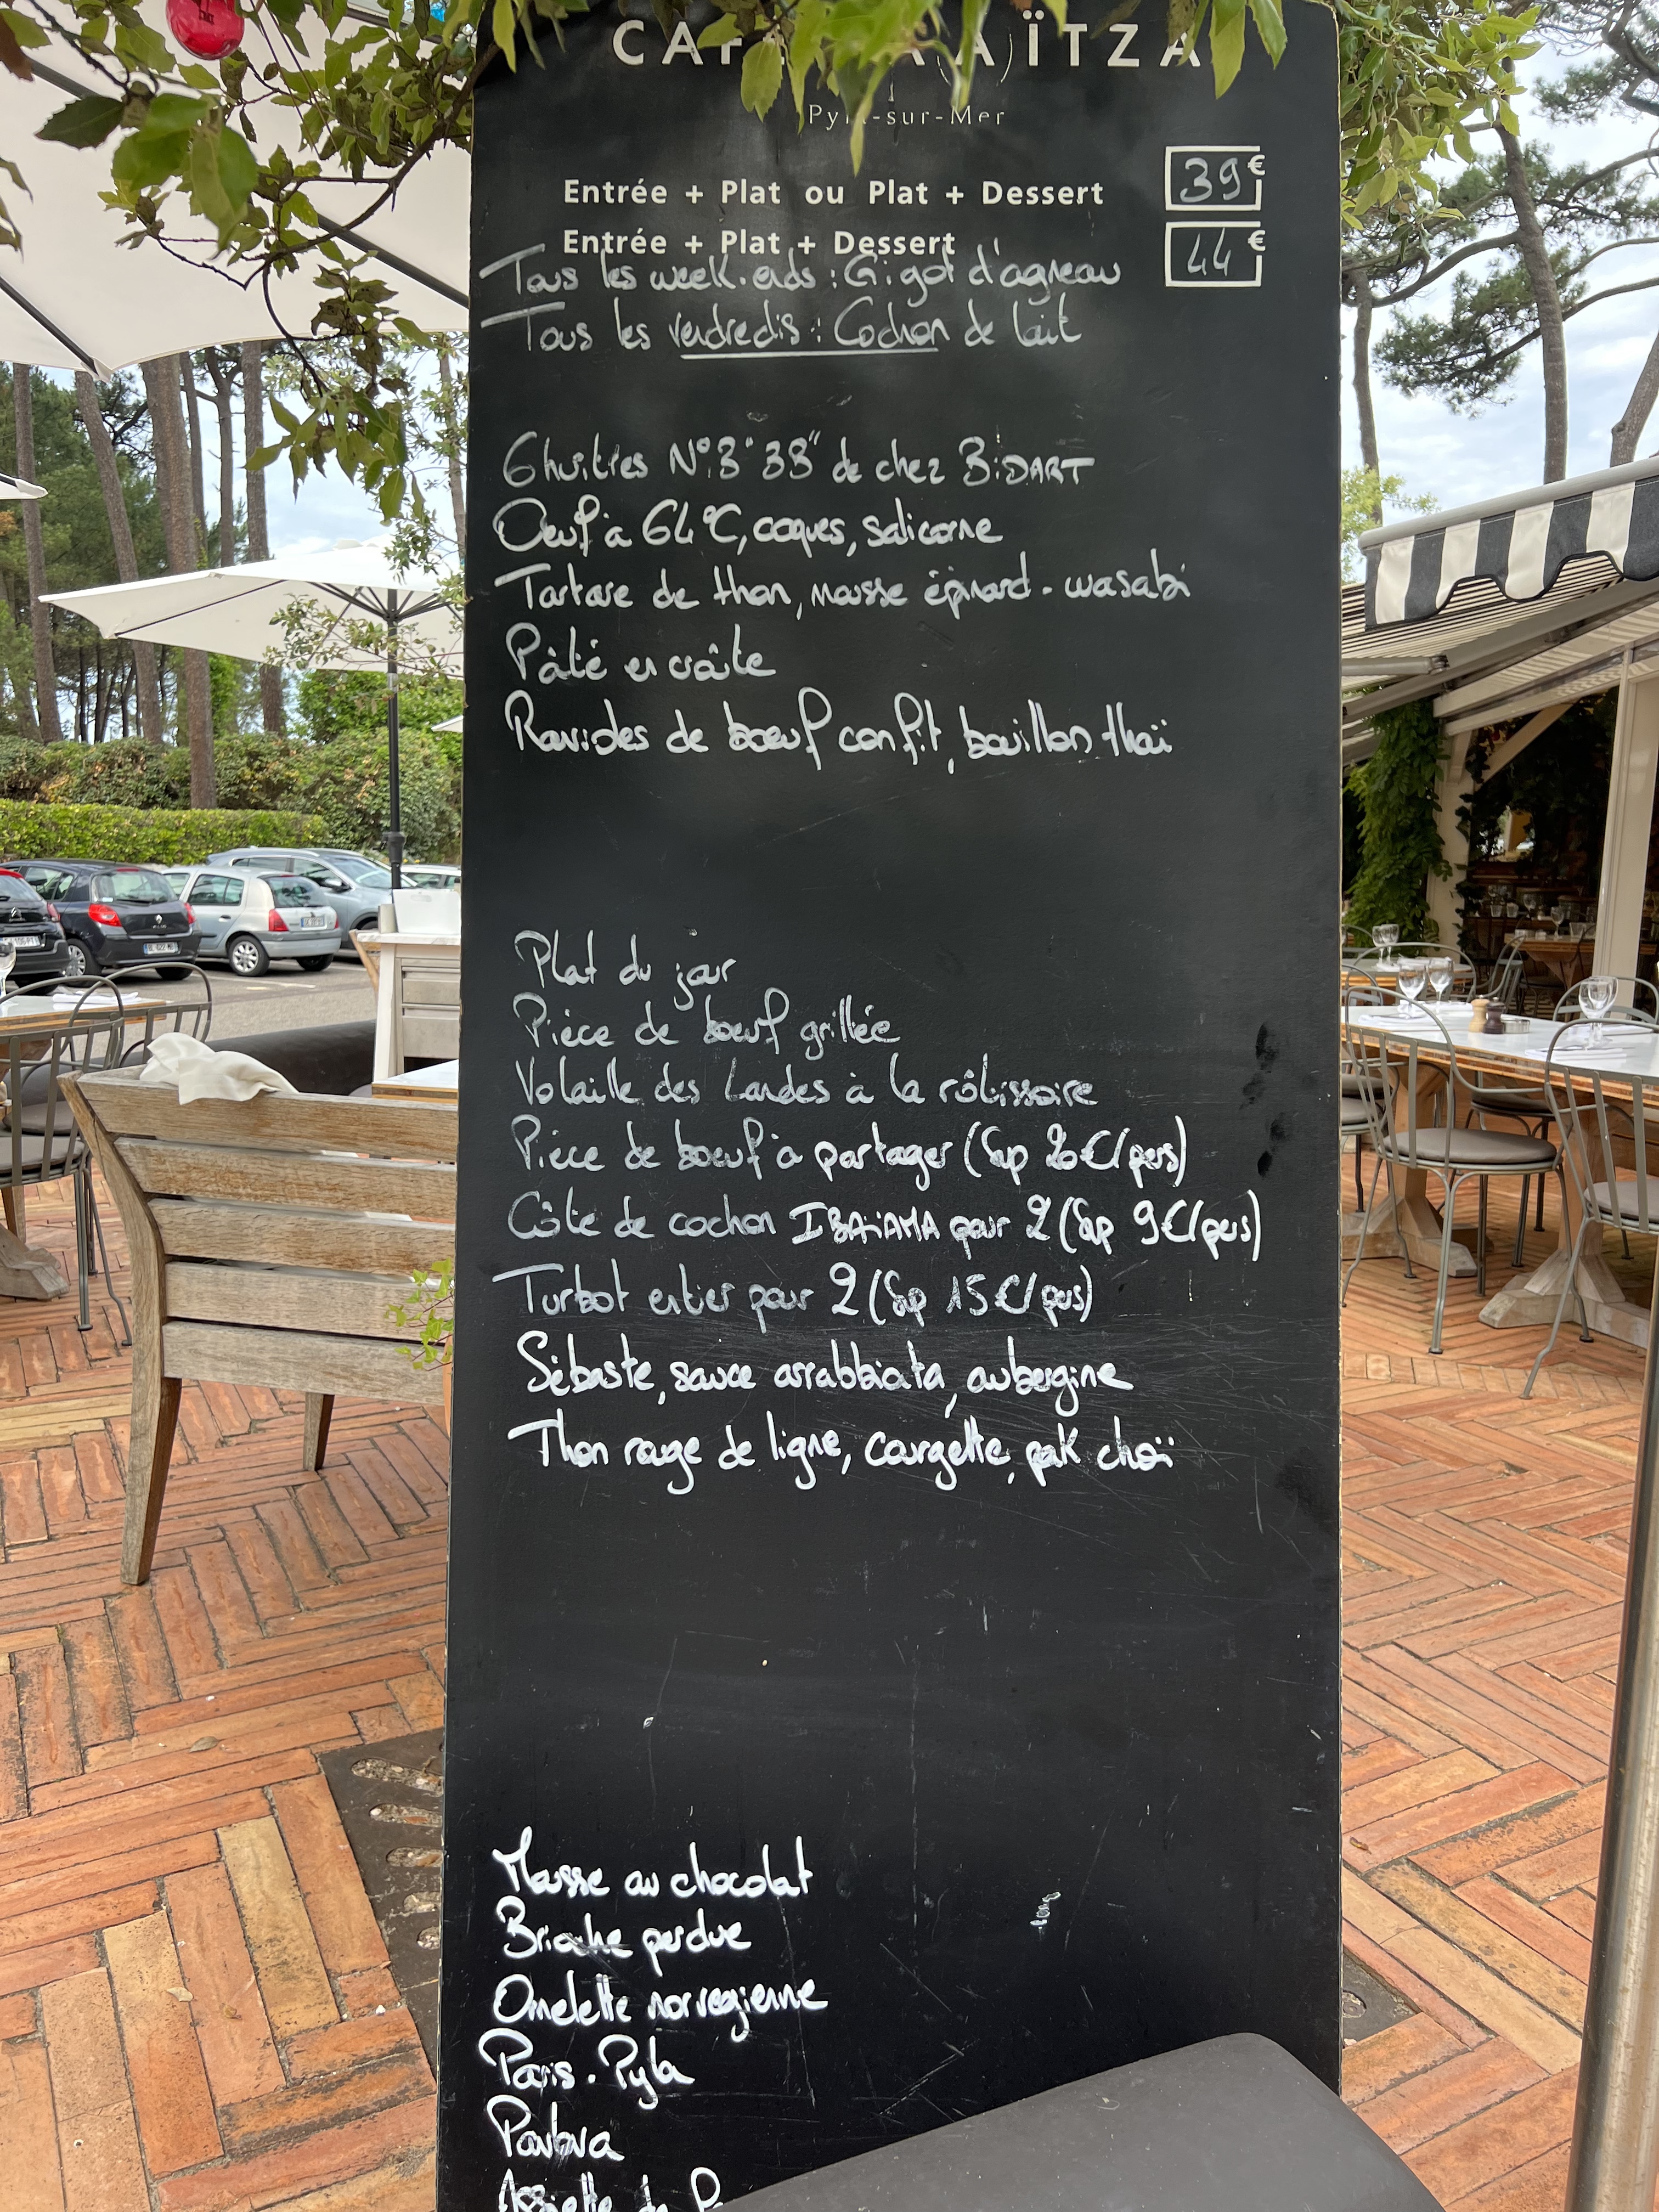 CAF ÏTZA
-sur-Mer
Entrée + Plat ou Plat + Dessert 39€
Entrée + Plat + Dessert 44€
Tous les week-ends : Gigot d'agneau
Tous les vendredis : Cochon de lait
6 huîtres N°3 "38" de chez BiDART
Oeuf à 64°C, coques, salicorne
Tartare de thon, mousse épinard - wasabi
Pâté en croûte
Ravioles de boeuf confit, bouillon thaï
Plat du jour
Pièce de boeuf grillée
Volaille des Landes à la rôtissoire
Pièce de boeuf à partager (Sup 20€/pers)
Côte de cochon IBAiAMA pour 2 (Sup 9€/pers)
Turbot entier pour 2 (Sup 15€/pers)
Sébaste, sauce arrabbiata, aubergine
Thon rouge de ligne, courgette, pak choï
Mousse au chocolat
Brioche perdue
Omelette norvegienne
Paris - Pyla
Pavlova
Assiette de